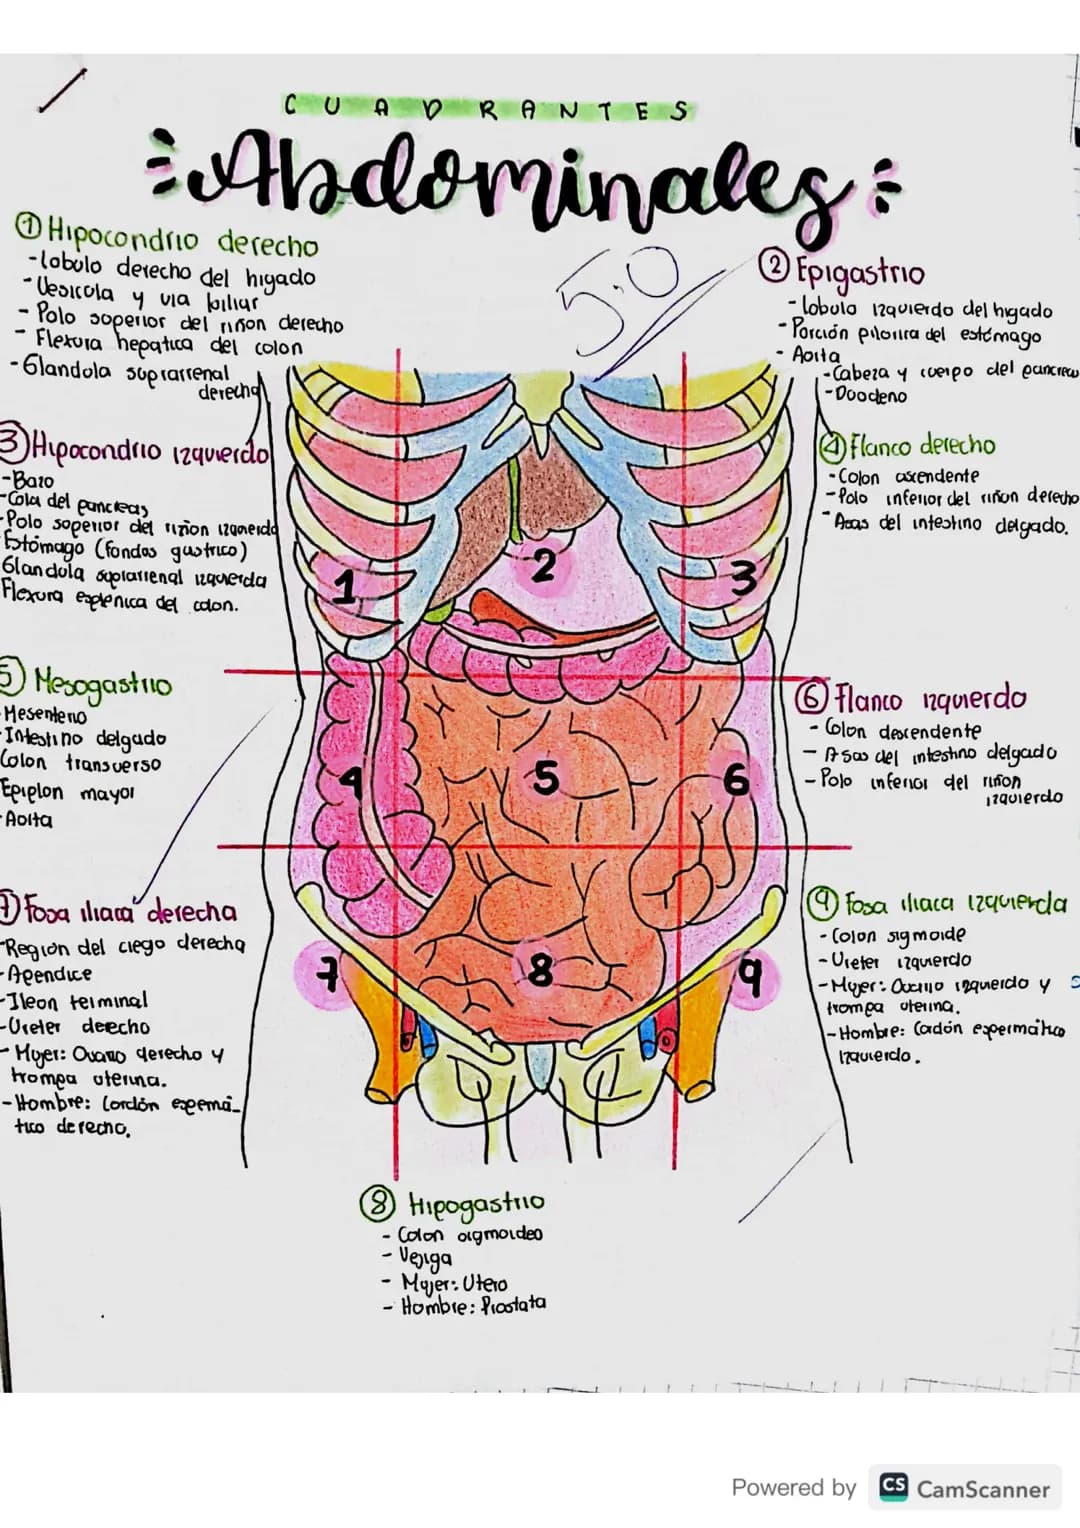 CUADRANTES
Abdominales
5.0
① Hipocondrio derecho
-lobulo derecho del higado
-Vesicula y via biliar
- Polo soperior del riñon derecho
- Flexura hepatica del colon
-Glandola suprarrenal
derecha
② Epigastrio
- lobulo izquierdo del higado
- Porción pilorica del estómago
- Aorta
-Cabeza y cuerpo del pancreas
-Duodeno
③ Hipocondrio izquierdo
-Bazo
-Cola del pancreas
-Polo soperior del riñon izquierdo
Estómago (fondos gustrico)
Glandola suprarrenal izquierda
Flexura esplenica del colon.
④ Flanco derecho
- Colon ascendente
-Polo inferior del riñon derecho
-Asas del intestino delgado.
⑤ Mesogastrio
-Mesenterio
-Intestino delgado
Colon transverso
Epiplon mayor
-Aorta
⑥ Flanco izquierdo
- Colon descendente
- Asas del intestino delgado
- Polo inferior del riñon
izquierdo
⑦ Fosa iliaca derecha
-Region del ciego derecha
-Apendice
-Ileon terminal
-Ureter derecho
- Mujer: Ovario derecho y
trompa uterina.
-Hombre: Cordón espermá-
tico derecho.
⑨ Fosa iliaca izquierda
- Colon sigmoide
- Ureter izquierdo
-Mujer: Ovario izquierdo y
trompa uterina.
-Hombre: Cordón espermático
izquierdo.
1
2
3
4
5
6
7
8
9
⑧ Hipogastrio
- Colon sigmoideo
- Vejiga
- Mujer: Utero
- Hombre: Prostata
Powered by CS CamScanner